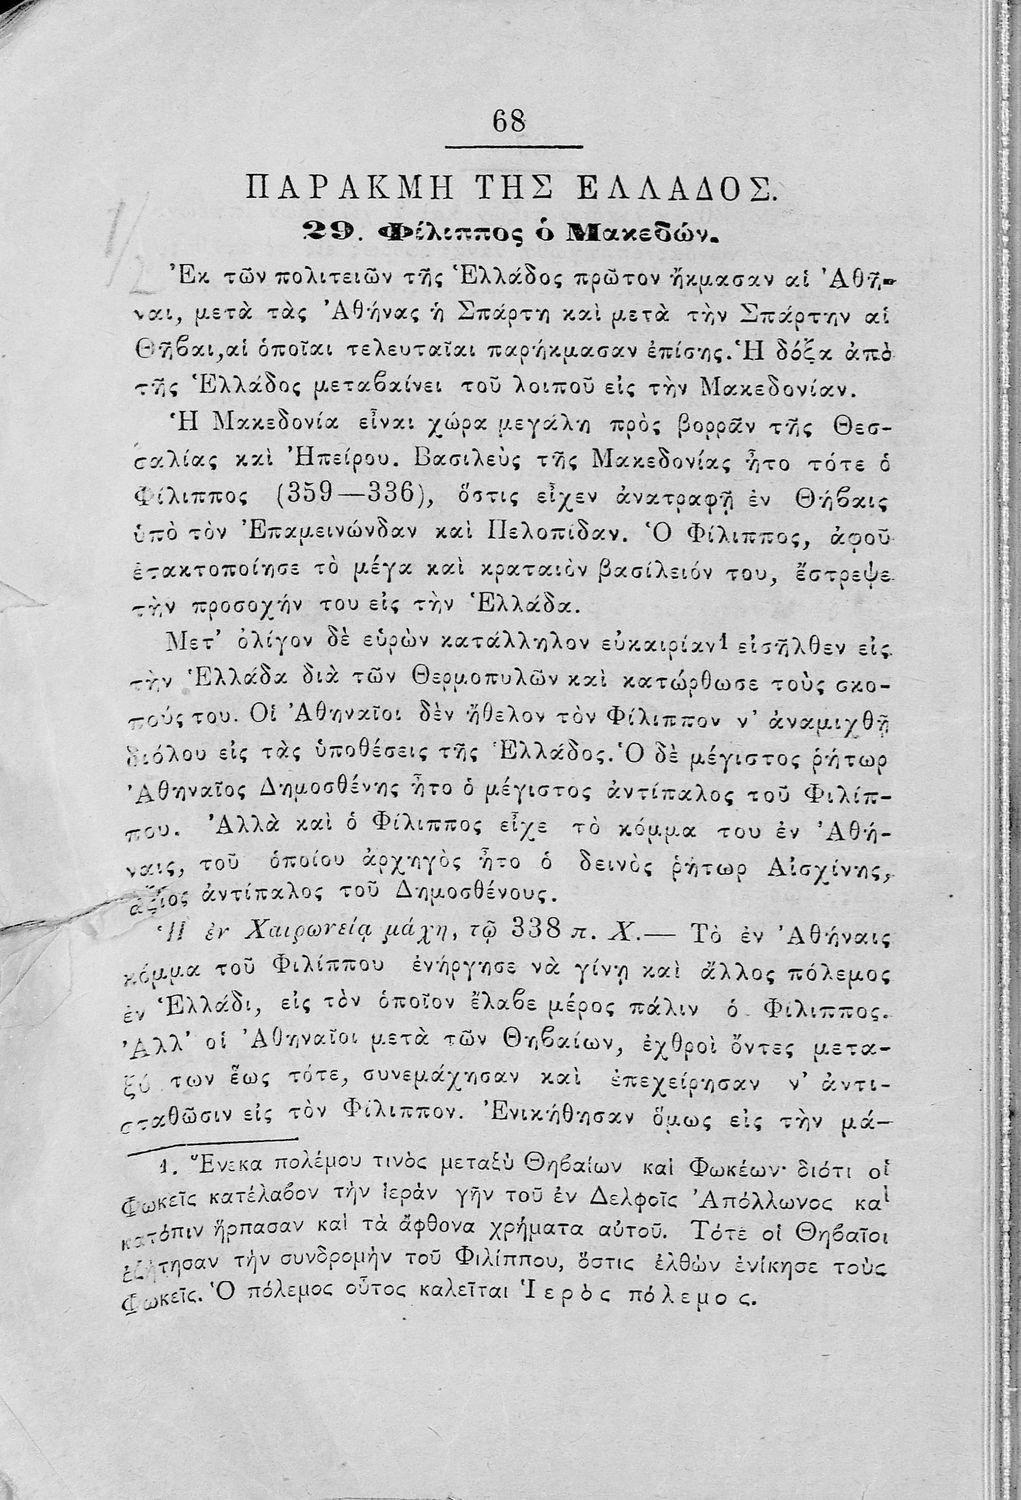 68
ΠΑΡΑΚΜΗ ΤΗΣ ΕΛΛΑΔΟΣ.
29. Φίλιππος ὁ Μακεδών.
Ἐκ τῶν πολιτειῶν τῆς Ἑλλάδος πρῶτον ἤκμασαν αἱ Ἀθῆ-
ναι, μετὰ τὰς Ἀθήνας ἡ Σπάρτη καὶ μετὰ τὴν Σπάρτην αἱ
Θῆβαι, αἱ ὁποῖαι τελευταῖαι παρήκμασαν ἐπίσης. Ἡ δόξα ἀπὸ
τῆς Ἑλλάδος μεταβαίνει τοῦ λοιποῦ εἰς τὴν Μακεδονίαν.
Ἡ Μακεδονία εἶναι χώρα μεγάλη πρὸς βορρᾶν τῆς Θεσ-
σαλίας καὶ Ἠπείρου. Βασιλεὺς τῆς Μακεδονίας ἦτο τότε ὁ
Φίλιππος (359—336), ὅστις εἶχεν ἀνατραφῇ ἐν Θήβαις
ὑπὸ τὸν Ἐπαμεινώνδαν καὶ Πελοπίδαν. Ὁ Φίλιππος, ἀφοῦ
ἐτακτοποίησε τὸ μέγα καὶ κραταιὸν βασίλειόν του, ἔστρεψε
τὴν προσοχήν του εἰς τὴν Ἑλλάδα.
Μετ' ὀλίγον δὲ εὑρὼν κατάλληλον εὐκαιρίαν1 εἰσῆλθεν εἰς
τὴν Ἑλλάδα διὰ τῶν Θερμοπυλῶν καὶ κατώρθωσε τοὺς σκο-
πούς του. Οἱ Ἀθηναῖοι δὲν ἤθελον τὸν Φίλιππον ν' ἀναμιχθῇ
διόλου εἰς τὰς ὑποθέσεις τῆς Ἑλλάδος. Ὁ δὲ μέγιστος ῥήτωρ
Ἀθηναῖος Δημοσθένης ἦτο ὁ μέγιστος ἀντίπαλος τοῦ Φιλίπ-
που. Ἀλλὰ καὶ ὁ Φίλιππος εἶχε τὸ κόμμα του ἐν Ἀθή-
ναις, τοῦ ὁποίου ἀρχηγὸς ἦτο ὁ δεινὸς ῥήτωρ Αἰσχίνης,
ἄξιος ἀντίπαλος τοῦ Δημοσθένους.
Ἡ ἐν Χαιρωνείᾳ μάχη, τῷ 338 π. Χ.— Τὸ ἐν Ἀθήναις
κόμμα τοῦ Φιλίππου ἐνήργησε νὰ γίνῃ καὶ ἄλλος πόλεμος
ἐν Ἑλλάδι, εἰς τὸν ὁποῖον ἔλαβε μέρος πάλιν ὁ Φίλιππος.
Ἀλλ' οἱ Ἀθηναῖοι μετὰ τῶν Θηβαίων, ἐχθροὶ ὄντες μετα-
ξύ των ἕως τότε, συνεμάχησαν καὶ ἐπεχείρησαν ν' ἀντι-
σταθῶσιν εἰς τὸν Φίλιππον. Ἐνικήθησαν ὅμως εἰς τὴν μά-
1. Ἕνεκα πολέμου τινὸς μεταξὺ Θηβαίων καὶ Φωκέων· διότι οἱ
Φωκεῖς κατέλαβον τὴν ἱερὰν γῆν τοῦ ἐν Δελφοῖς Ἀπόλλωνος καὶ
κατόπιν ἥρπασαν καὶ τὰ ἄφθονα χρήματα αὐτοῦ. Τότε οἱ Θηβαῖοι
ἐζήτησαν τὴν συνδρομὴν τοῦ Φιλίππου, ὅστις ἐλθὼν ἐνίκησε τοὺς
Φωκεῖς. Ὁ πόλεμος οὗτος καλεῖται Ἱερὸς πόλεμος.
1/2